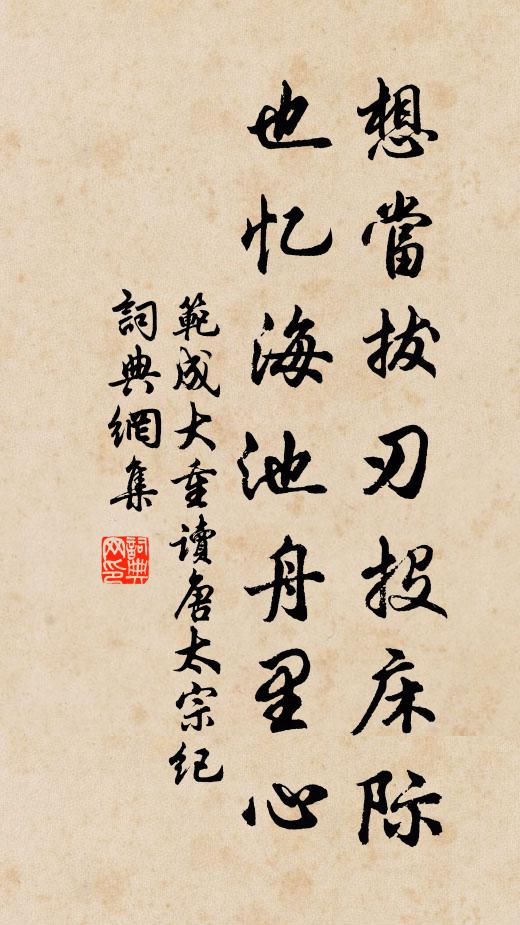 想當拔刃投床际
也忆海池舟里心
範成大重讀唐太宗紀
詞典網集
詞典网印